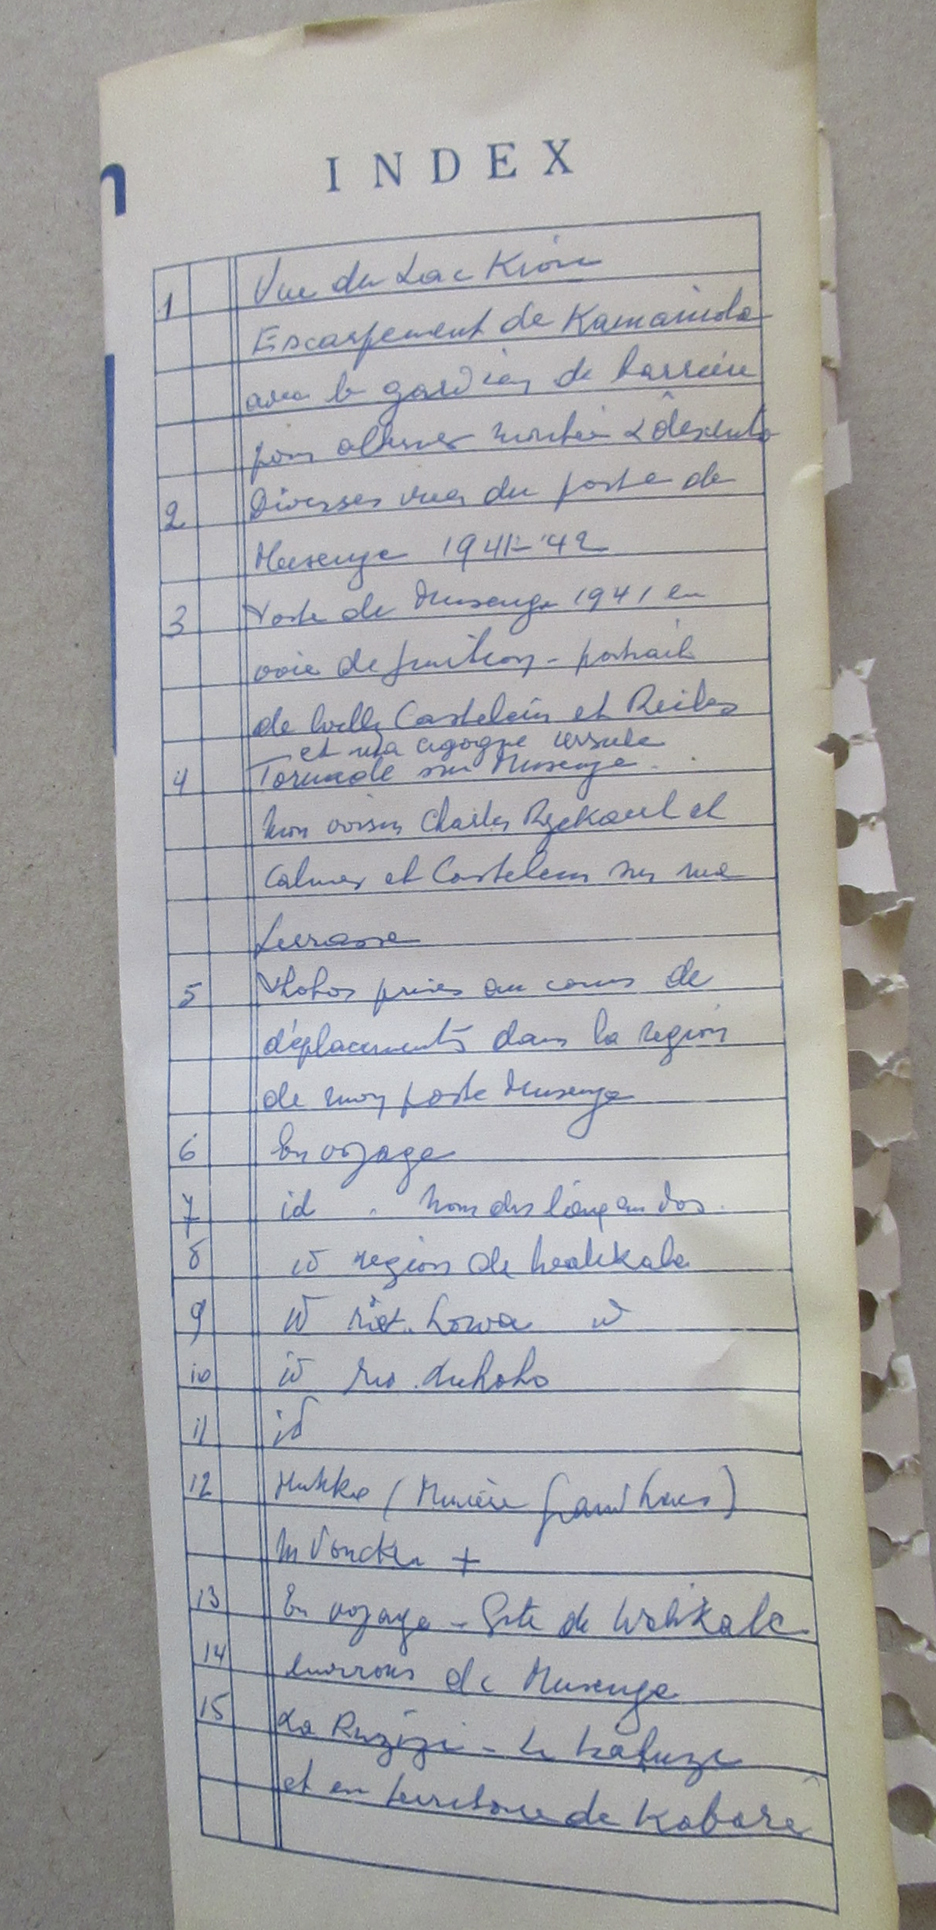 n
INDEX
1 Vue du Lac Kivu
Escarpement de Kamaniola
avec le gardien de barrière
pour alterner montée & descente
2 Diverses vues du poste de
Musenge 1941-'42
3 Poste de Musenge 1941 en
voie de finition - portrait
de Willy Castelein et
et ma cigogne Ursule
4 Tornade sur Musenge.
Mon voisin Charles et
et Castelein sur ma
terrasse
5 Photos prises au cours de
déplacements dans la région
de mon poste Musenge
6 En voyage
7 id.
8 id région de Walikale
9 id Lowa id
10 id
11 id
12 (Minière Grand Lacs)
+
13 En voyage - Gîte de Walikale
14 Environs de Musenge
15 La Ruzizi - le
et en territoire de Kabare